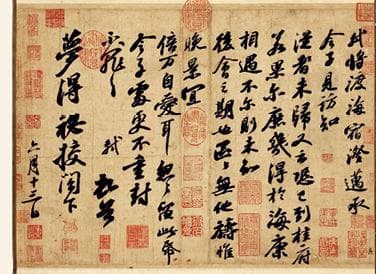 軾將渡海宿澄邁承
令子見訪知
從者未歸又云恐已到桂府
若果爾庶幾得於海康
相遇不爾則未知
後會之期也區區無他禱惟
晚景宜
倍萬自愛耳匆匆留此帋
令子處更不重封
不罪不罪軾頓首
夢得祕校閣下
六月十三日